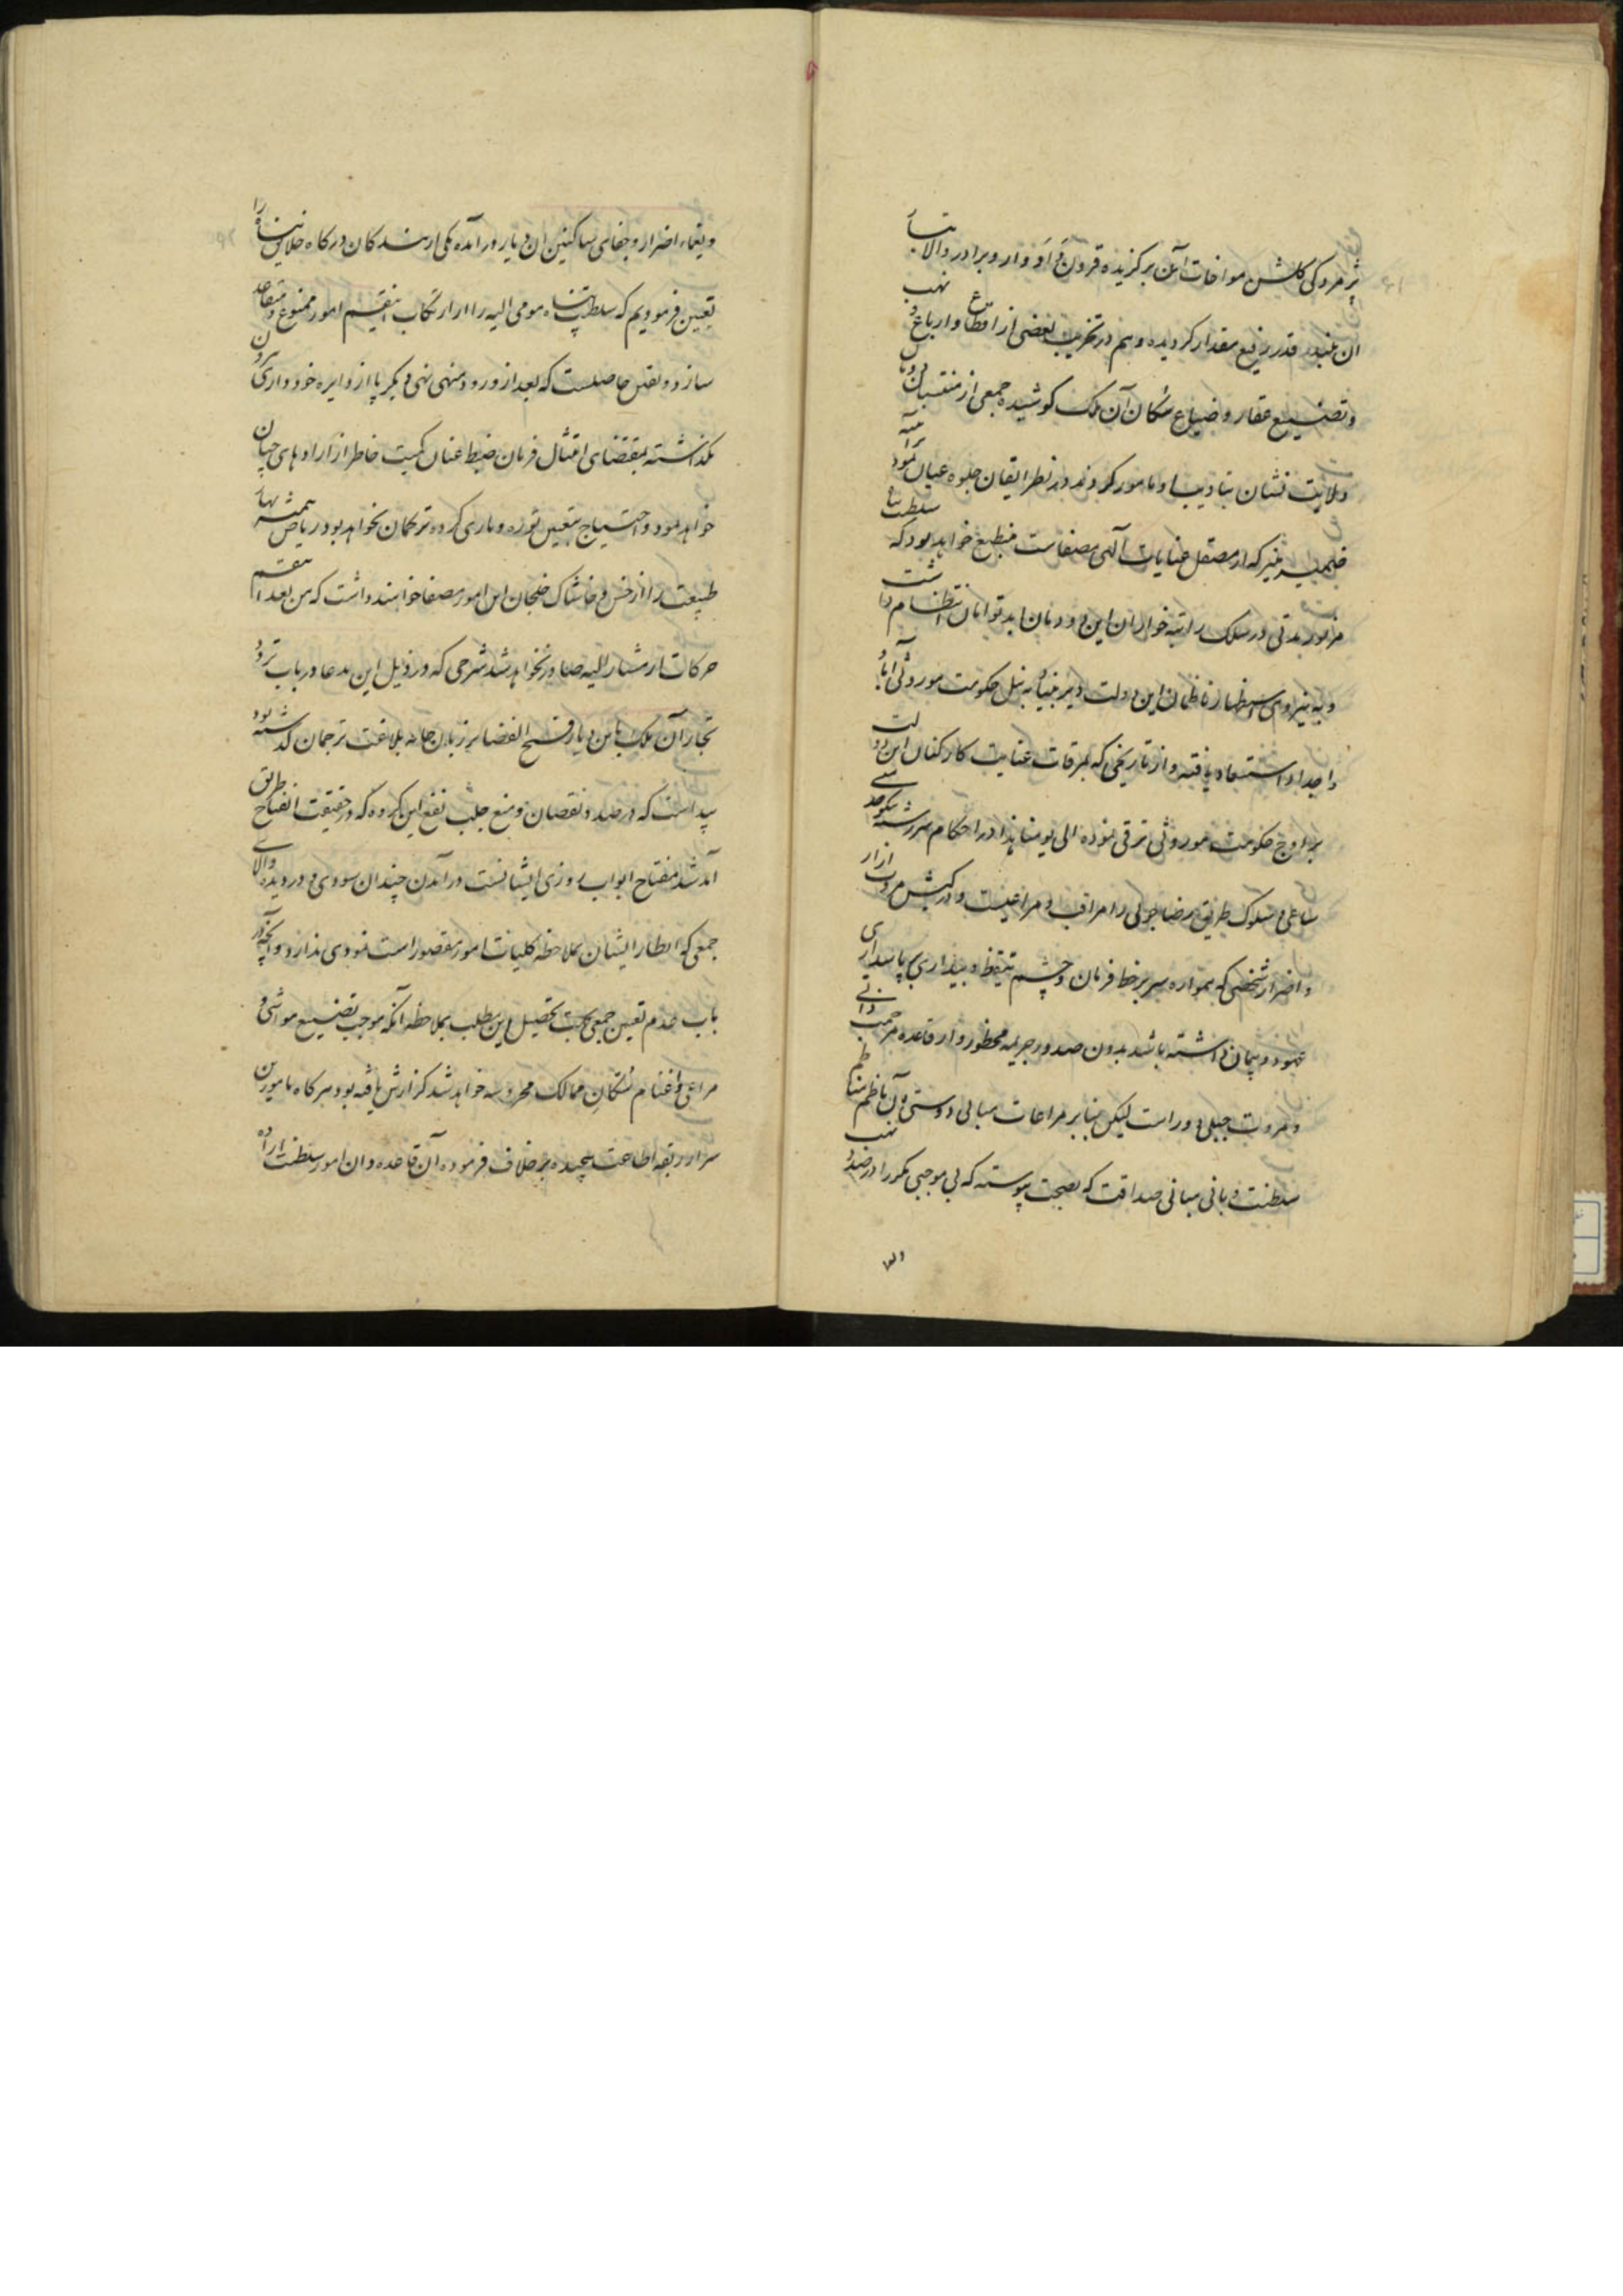 پژمردگی گلشن مواخات آن برگزیده قرون و ادوار و برادر والاتبار
آن بلند قدر رفیع مقدار گردیده و هم در تخریب بعضی از اقطاع و ارباع و نهب
و تضییع عقار و ضیاع سکان آن ملک کوشیده جمعی از منتسبان
ولایت نشان بتادیب او مامور کردند در نظر ایقان جلوه عیان نمود
ضمیر منیر که از مصقل عنایات الهی مصفاست منطبع خواهد بود که سلطنت
مزبور مدتی در سلک راتبه خواران این دودمان ابد توامان انتظام داشت
و به نیروی استظهار ناظمان این دولت دیر بنیاد به نیل حکومت موروثی آبا و
اجداد استسعاد یافته و از تاریخی که بمرقات عنایت کارکنان این دولت
بر اوج حکومت موروثی ترقی نموده الی یومنا هذا در احکام سررشته نیکوخدمتی
ساعی و سلوک طریق رضاجوئی را مراقب و مراعیست و در کیش مروت ازار
و اضرار شخصی که همواره سر بر خط فرمان و چشم تیقظ و بیداری بر پاسداری
عهود و پیمان داشته باشد بدون صدور جریمه محظور و از قاعده مرحمت ذاتی
و مروت جبلی دور است لیکن بنابر مراعات مبانی دوستی آن ناظم مناظم
سلطنت و بانی مبانی صداقت که بصحت پیوسته که بی موجبی مکرر در صدد نهب
و یغماء اضرار و جفای ساکنین آن دیار در آمده یکی از بندگان درگاه خلایق پناه را
تعیین فرمودیم که سلطنت پناه مومی الیه را از ارتکاب اینقسم امور ممنوع و متقاعد
سازد و یقین حاصلست که بعد از ورود منهی نهی دیگر پا از دایره خودداری بیرون
نگذاشته بمقتضای امتثال فرمان ضبط عنان کمیت خاطر از اراده های چنان
خواهد نمود و احتیاج بتعیین توره و یاری کرده ترکمان نخواهد بود ریاض همیشه بهار
طبیعت را از خس و خاشاک خلجان این امور مصفا خواهند داشت که من بعد اینقسم
حرکات از مشارالیه صادر نخواهد شد شرحی که در ذیل این مدعا در باب تردد
تجار آن ملک باین دیار فسیح الفضا بر زبان خامه بلاغت ترجمان گذشته بود
پیداست که در صدد نقصان و منع جلب نفع این گروه که در حقیقت انفتاح طریق
آمد شد مفتاح ابواب روزی ایشانست در آمدن چندان سودی در دیده والای
جمعی که انظار ایشان بملاحظه کلیات امور مقصور است نمودی ندارد و آنچه در
باب عدم تعیین جمعی بجهت تحصیل این مطلب بملاحظه آنکه موجب تضییع مواشی و
مراعی و اغنام سکان ممالک محروسه خواهد شد گزارش یافته بود هر گاه مامورین
سر از ربقه اطاعت پیچیده بر خلاف فرموده آن قاعده دان امور سلطنت اراده